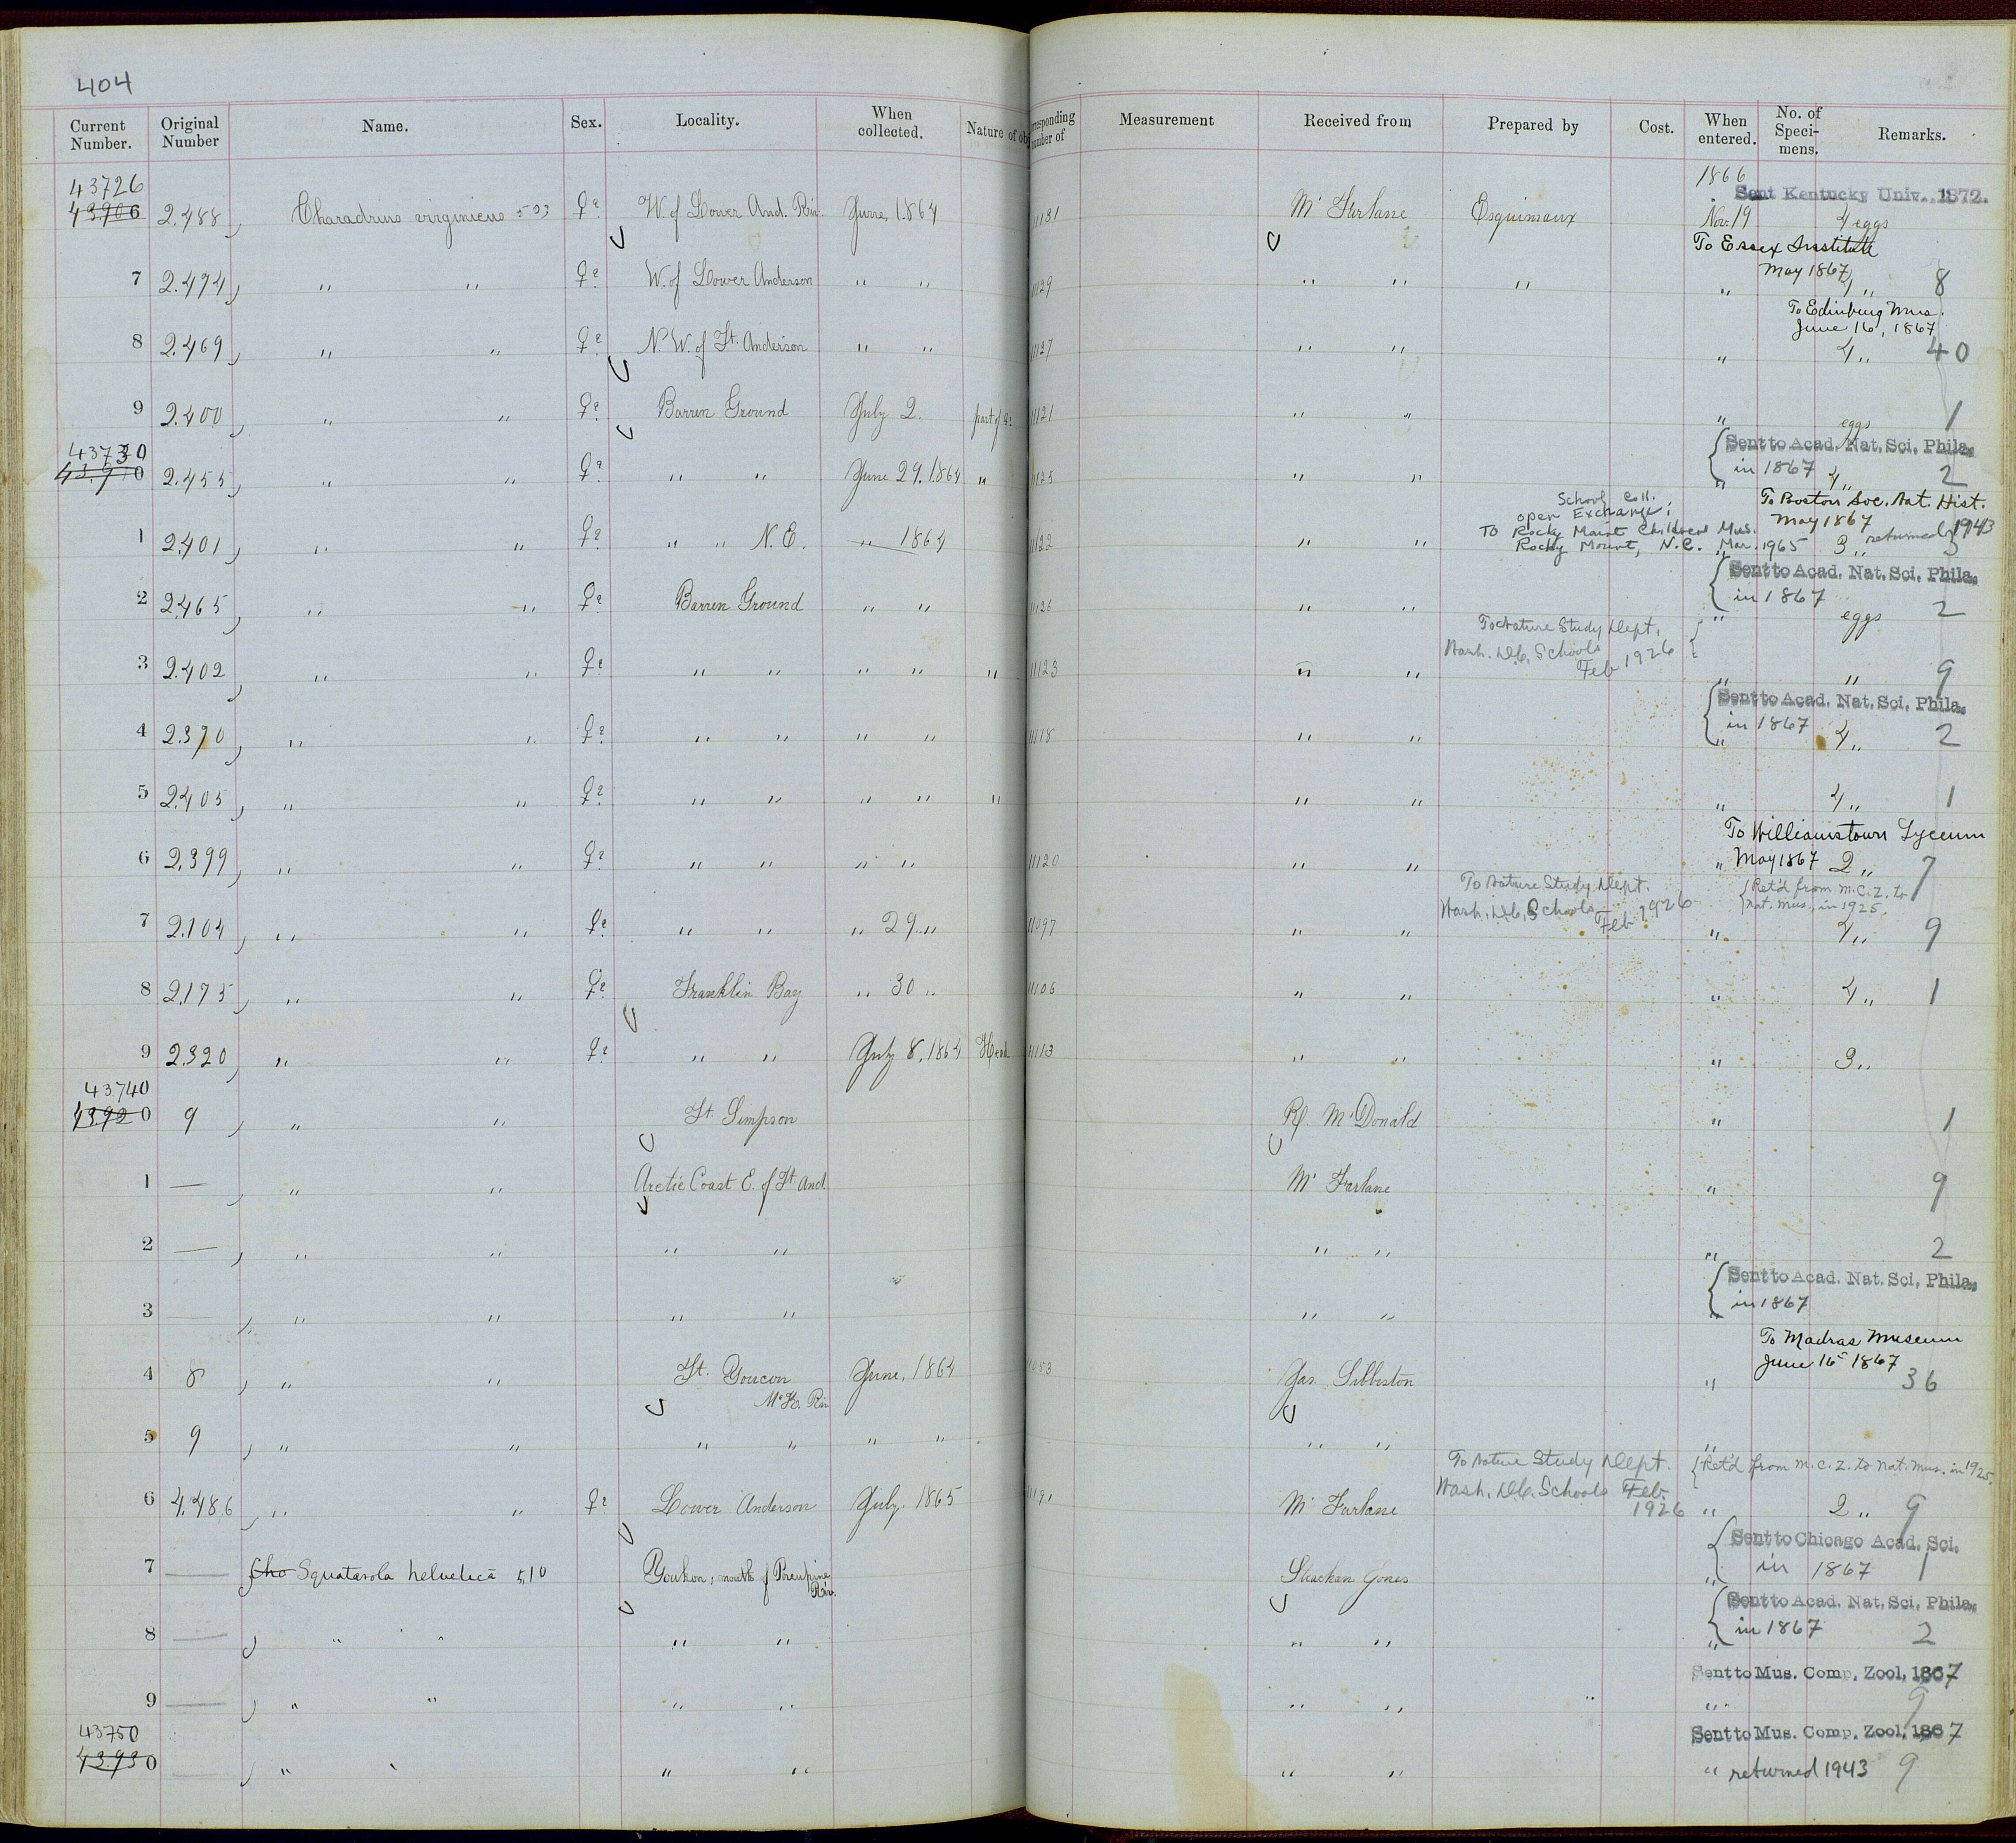 404
Current Number. Original Number Name. Sex. Locality. When collected. Nature of obj Corresponding number of Measurement Received from Prepared by Cost. When entered. No. of Speci-mens. Remarks.
43726 1866 Sent Kentucky Univ., 1872.
43906 2.488 Charadrius virginicus 503 ♀? W. of Lower And. Riv. June, 1864 11131 McFarlane Esquimaux Nov. 19 4 eggs
To Essex Institute
May 1867
7 2.494 " " ♀? W. of Lower Anderson " " 11129 " " " " 4 " 8
To Edinburg Mus.
June 16, 1867
8 2.469 " " ♀? N.W. of Ft. Anderson " " 11127 " " " 4 " 40
9 2.400 " " ♀? Barren Ground July 2. part of 11121 " " " eggs 1
43730 Sent to Acad. Nat. Sci. Phila.
in 1867
43910 2.455 " " ♀? " " June 29, 1864 " 1125 " " " 4 " 2
School Coll. To Boston Soc. Nat. Hist.
open Exchange; May 1867
To Rocky Mount Childrens Mus. returned 1943
Rocky Mount, N.C. Mar. 1965
1 2401 " " ♀? " " N.E. " 1864 1122 " " " 3 " 3
Sent to Acad. Nat. Sci. Phila.
in 1867
2 2465 " " ♀? Barren Ground " " 1126 " " " eggs 2
To Nature Study Dept.
Wash. D.C. Schools
Feb 1926
3 2.402 " " ♀? " " " " " 11123 " " " " 9
Sent to Acad. Nat. Sci. Phila.
in 1867
4 2390 " " ♀? " " " " 11118 " " " 4 " 2
5 2.405 " " ♀? " " " " " " " " 4 " 1
To Williamstown Lyceum
May 1867
6 2.399 " " ♀? " " " " 11120 " " " 2 " 7
To Nature Study Dept. Ret'd from M.C.Z. to
Wash. D.C. Schools Feb 1926 Nat. Mus. in 1925.
7 2.104 " " ♀? " " " 29 " 11097 " " " 4 " 9
8 2.175 " " ♀? Franklin Bay " 30 " 11106 " " " 4 " 1
9 2.320 " " ♀? " " July 8, 1864 Head 11113 " " " 3 "
43740
43920 9 " " Ft. Simpson R. McDonald " 1
1 — " " Arctic Coast E. of Ft And. McFarlane " 9
2 — " " " " " " " 2
Sent to Acad. Nat. Sci. Phila.
in 1867
3 — " " " " " " "
To Madras Museum
June 16 1867
4 8 " " Ft. Youcon June, 1864 1053 Jas. Sibbiston " 36
Riv
5 9 " " " " " " " " "
To Nature Study Dept. Ret'd from M.C.Z. to Nat. Mus. in 1925.
Wash. D.C. Schools Feb. 1926
6 4.486 " " ♀? Lower Anderson July. 1865 1191 McFarlane " 2 " 9
Sent to Chicago Acad. Sci.
in 1867
7 — Cha Squatarola helvetica 510 Youkon; mouth of Porcupine Riv. Strachan Jones " 1
Sent to Acad. Nat. Sci. Phila.
in 1867
8 — " " " " " " " 2
Sent to Mus. Comp. Zool. 1867
9 — " " " " " " " " 9
43750 Sent to Mus. Comp. Zool. 1867
43930 — " " " " " " " returned 1943 9